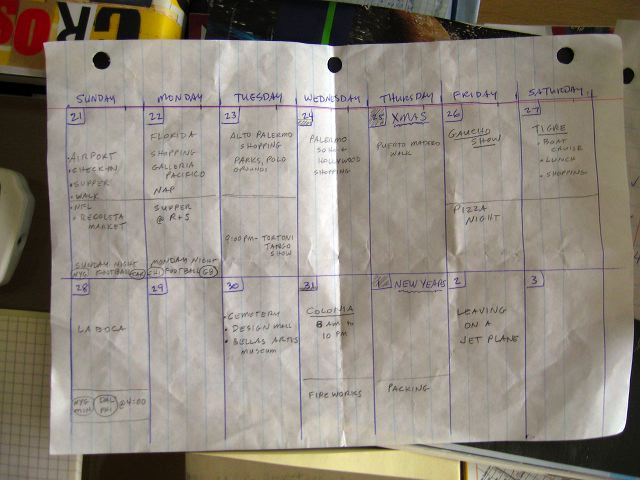 ROS
SUNDAY MONDAY TUESDAY WEDNESDAY THURSDAY FRIDAY SATURDAY
21
• AIRPORT
• CHECK-IN
• SUPPER
• WALK
• NFL
• RECOLETA
MARKET
SUNDAY NIGHT
NYG FOOTBALL CAR
22
FLORIDA
SHOPPING
GALLERIA
PACIFICO
NAP
SUPPER
@ R+S
MONDAY NIGHT
CHI FOOTBALL GB
23
ALTO PALERMO
SHOPPING
PARKS, POLO
GROUNDS
9:00PM - TORTONI
TANGO
SHOW
24
PALERMO
SOHO +
HOLLYWOOD
SHOPPING
25 XMAS
PUERTO MADERO
WALK
26
GAUCHO
SHOW
PIZZA
NIGHT
27
TIGRE
• BOAT
CRUISE
• LUNCH
• SHOPPING
28
LA BOCA
NYG
MIN
DAL
PHI
@ 4:00
29
30
• CEMETERY
• DESIGN MALL
• BELLAS ARTES
MUSEUM
31
COLONIA
8 AM to
10 PM
FIREWORKS
NEW YEARS
PACKING
2
LEAVING
ON A
JET PLANE
3